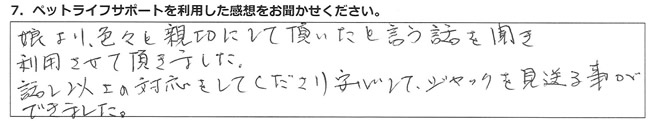 7. ペットライフサポートを利用した感想をお聞かせください。
娘より、色々と親切にして頂いたと言う話を聞き
利用させて頂きました。
話し以上の対応をしてくださり安心して、ジャックを見送る事が
できました。